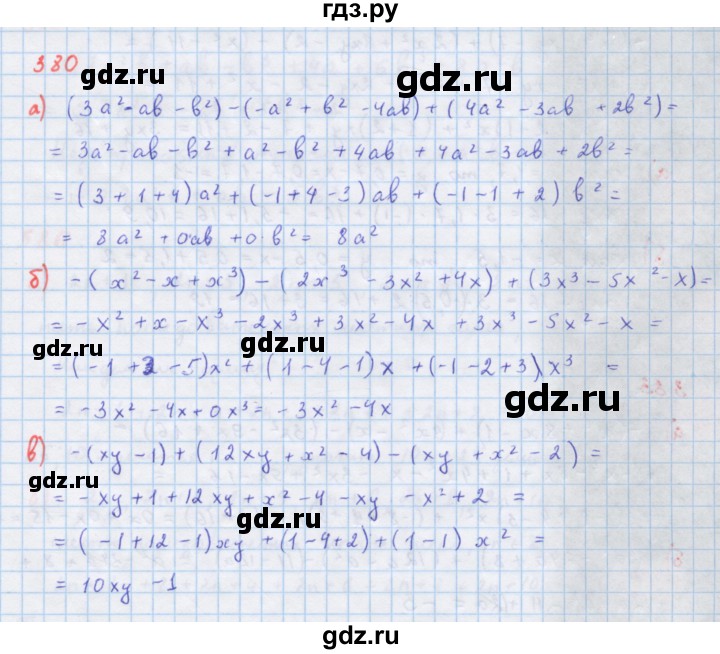 гдз.ру
380
а) (3a² - ab - b²) - (-a² + b² - 4ab) + (4a² - 3ab + 2b²) =
= 3a² - ab - b² + a² - b² + 4ab + 4a² - 3ab + 2b² =
= (3 + 1 + 4) a² + (-1 + 4 - 3) ab + (-1 - 1 + 2) b² =
= 8a² + 0ab + 0·b² = 8a²
gdz.ru
gdz.ru
б) -(x² - x + x³) - (2x³ - 3x² + 4x) + (3x³ - 5x² - x) =
= -x² + x - x³ - 2x³ + 3x² - 4x + 3x³ - 5x² - x =
gdz.ru
gdz.ru
= (-1 + 3 - 5)x² + (1 - 4 - 1) x + (-1 - 2 + 3) x³ =
= -3x² - 4x + 0x³ = -3x² - 4x
gdz.ru
в) -(xy - 1) + (12xy + x² - 4) - (xy + x² - 2) =
gdz.ru
= -xy + 1 + 12xy + x² - 4 - xy - x² + 2 =
gdz.ru
= (-1 + 12 - 1)xy + (1 - 4 + 2) + (1 - 1) x² =
= 10xy - 1
gdz.ru
gdz.ru